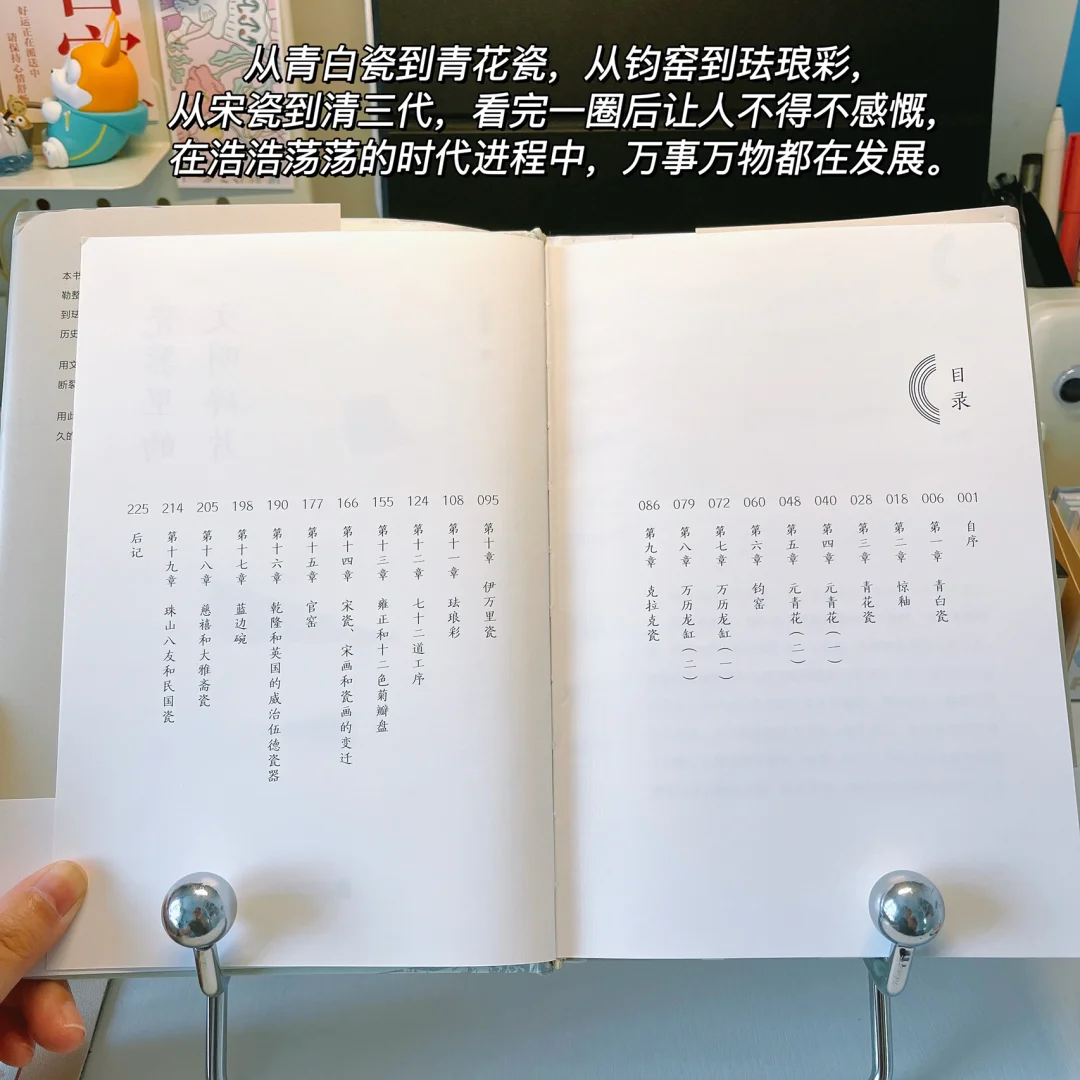 从青白瓷到青花瓷，从钧窑到珐琅彩，
从宋瓷到清三代，看完一圈后让人不得不感慨，
在浩浩荡荡的时代进程中，万事万物都在发展。
好运正在派送中
请保持心情舒畅
目录
001 自序
006 第一章 青白瓷
018 第二章 惊釉
028 第三章 青花瓷
040 第四章 元青花（一）
048 第五章 元青花（二）
060 第六章 钧窑
072 第七章 万历龙缸（一）
079 第八章 万历龙缸（二）
086 第九章 克拉克瓷
095 第十章 伊万里瓷
108 第十一章 珐琅彩
124 第十二章 七十二道工序
155 第十三章 雍正和十二色菊瓣盘
166 第十四章 宋瓷、宋画和瓷画的变迁
177 第十五章 官窑
190 第十六章 乾隆和英国的威治伍德瓷器
198 第十七章 蓝边碗
205 第十八章 慈禧和大雅斋瓷
214 第十九章 珠山八友和民国瓷
225 后记
本书
勒整
到珐
历史
用文
断裂
用此
久的